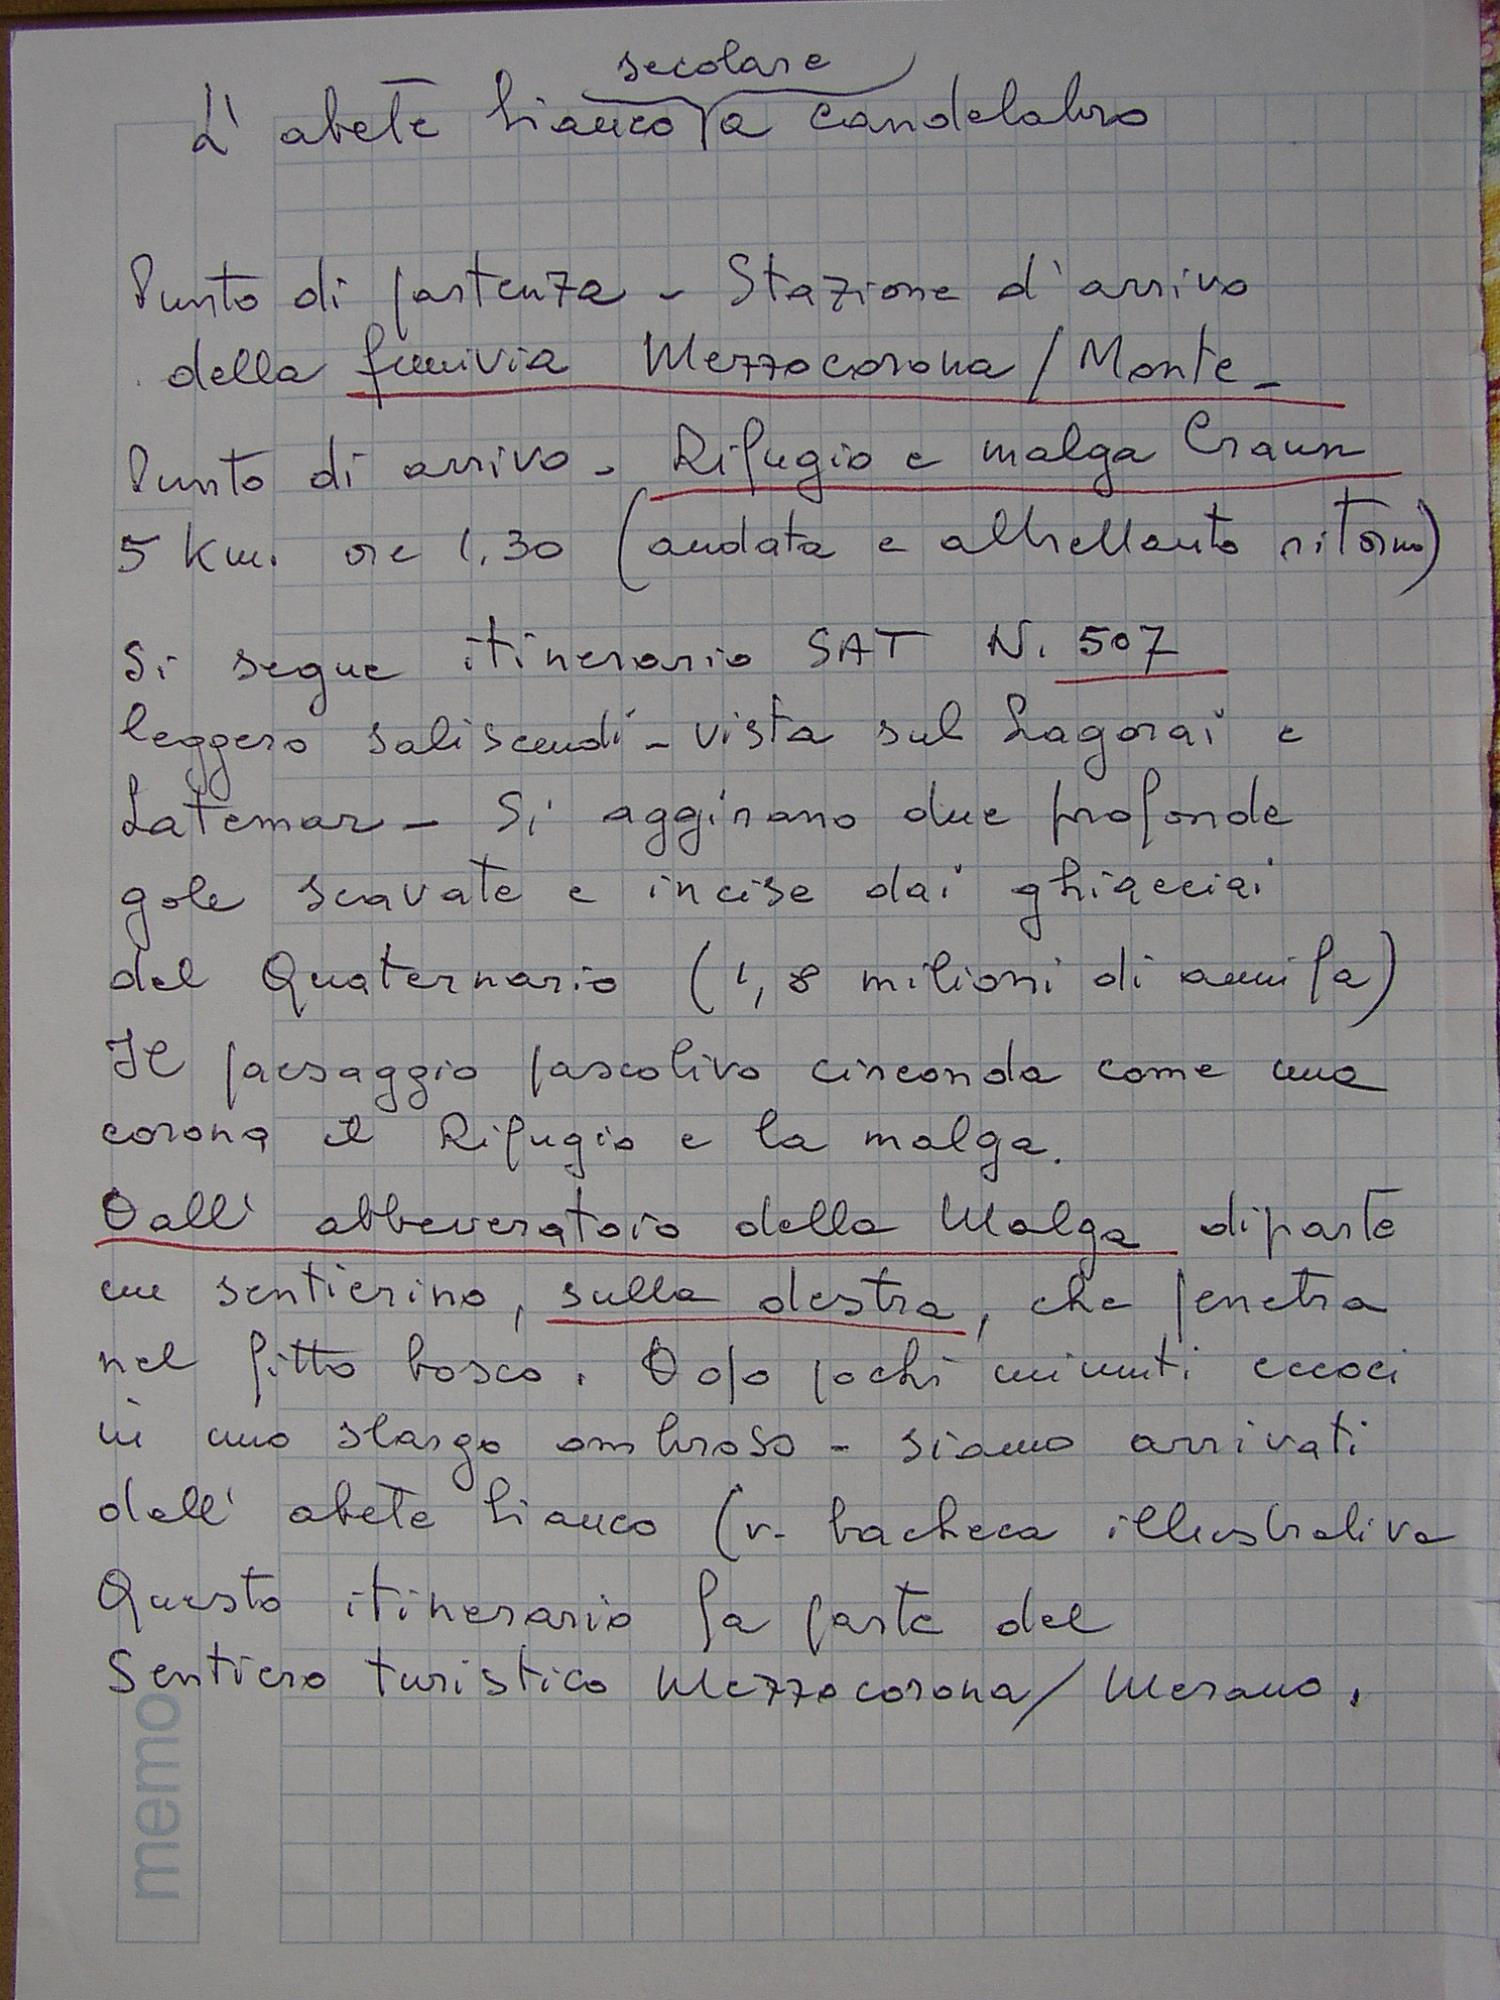 L'abete bianco secolare a candelabro
Punto di partenza - Stazione d'arrivo
della funivia Mezzocorona/Monte -
Punto di arrivo - Rifugio e malga Craun
5 Km. ore 1,30 (andata e altrettanto ritorno)
Si segue itinerario SAT N. 507
leggero saliscendi - vista sul Lagorai e
Latemar - Si aggirano due profonde
gole scavate e incise dai ghiacciai
del Quaternario (1,8 milioni di anni fa)
Il paesaggio pascolivo circonda come una
corona il Rifugio e la malga.
Dall'abbeveratoio della Malga diparte
un sentierino, sulla destra, che penetra
nel fitto bosco. Dopo pochi minuti eccoci
in uno slargo ombroso - siamo arrivati
dall'abete bianco (v. bacheca illustrativa
Questo itinerario fa parte del
Sentiero turistico Mezzocorona/Merano.
memo